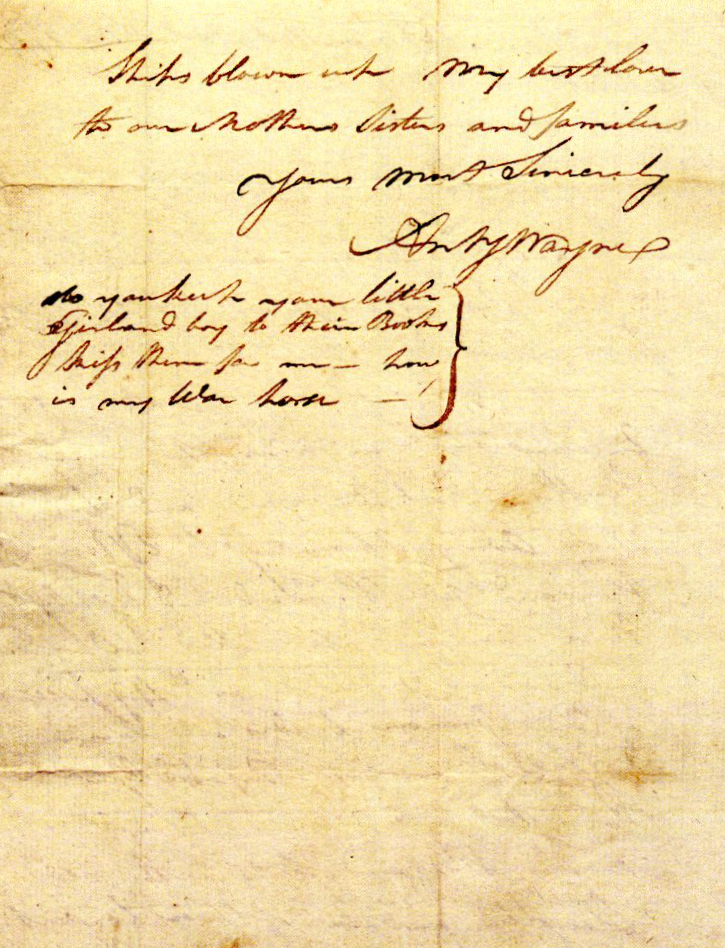 Ships blown up My best love
to our Mothers Sisters and families
Yours most Sincerely
Anty Wayne
do you keep your little
Girl and boy to their Books
kiss them for me — how
is my War horse —